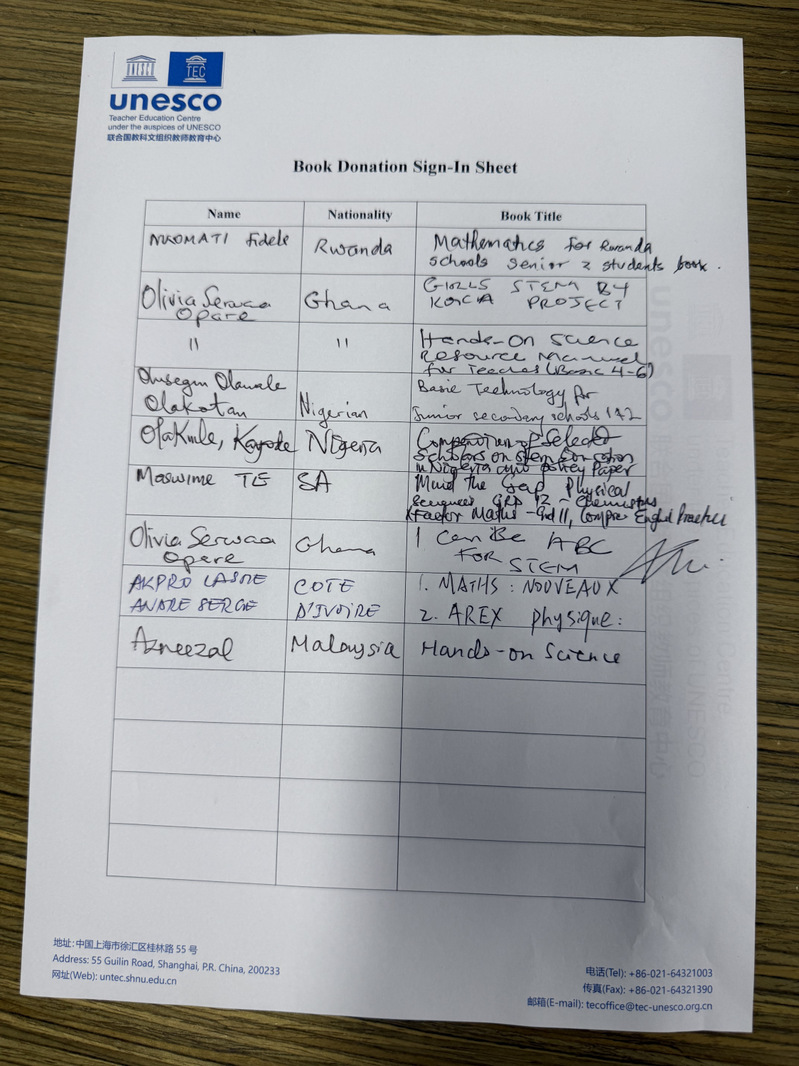 UNESCO TEC
unesco
Teacher Education Centre
under the auspices of UNESCO
联合国教科文组织教师教育中心
Book Donation Sign-In Sheet
Name Nationality Book Title
NKOMATI Fidele Rwanda Mathematics for Rwanda
schools senior 2 students book.
Olivia Serwaa Ghana GIRLS STEM BY
Opare KOICA PROJECT
" " Hands-On Science
Resource Manual
for Teaches (Basic 4-6)
Olusegun Olawale Basic Technology for
Olakotan Nigerian Junior secondary schools 1&2
Olakunle, Kayode Nigeria of Selected
Scholars on Stem Education
in Nigeria and Policy Paper
Maswime TE SA Mind the Gap Physical
Sciences GRD 12 - Chemistry
Xfactor Maths - Grd 11, English Practice
Olivia Serwaa Ghana I Can Be ABC
Opare FOR STEM
AKPRO LASME COTE 1. MATHS : NOUVEAUX
ANDRE SERGE D'IVOIRE 2. AREX physique :
Azneezal Malaysia Hands-on Science
地址: 中国上海市徐汇区桂林路 55 号
Address: 55 Guilin Road, Shanghai, P.R. China, 200233
网址(Web): untec.shnu.edu.cn
电话(Tel): +86-021-64321003
传真(Fax): +86-021-64321390
邮箱(E-mail): tecoffice@tec-unesco.org.cn